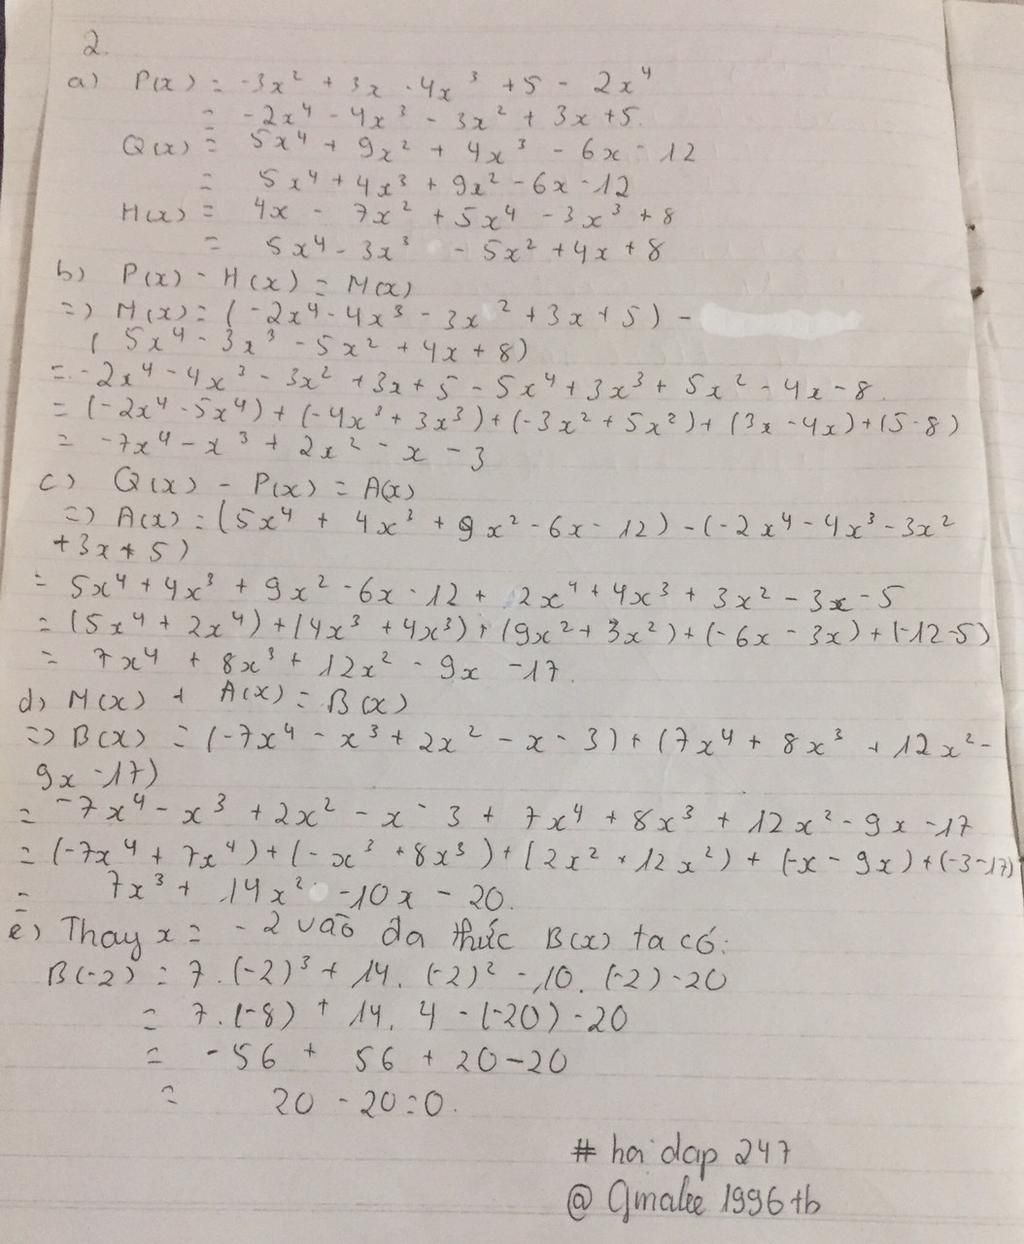 2.
a) P(x) = -3x² + 3x - 4x³ + 5 - 2x⁴
= -2x⁴ - 4x³ - 3x² + 3x + 5.
Q(x) = 5x⁴ + 9x² + 4x³ - 6x - 12
= 5x⁴ + 4x³ + 9x² - 6x - 12
H(x) = 4x - 7x² + 5x⁴ - 3x³ + 8
= 5x⁴ - 3x³ - 5x² + 4x + 8
b) P(x) - H(x) = M(x)
=) M(x) = (-2x⁴ - 4x³ - 3x² + 3x + 5) -
(5x⁴ - 3x³ - 5x² + 4x + 8)
= -2x⁴ - 4x³ - 3x² + 3x + 5 - 5x⁴ + 3x³ + 5x² - 4x - 8
= (-2x⁴ - 5x⁴) + (-4x³ + 3x³) + (-3x² + 5x²) + (3x - 4x) + (5 - 8)
= -7x⁴ - x³ + 2x² - x - 3
c) Q(x) - P(x) = A(x)
=) A(x) = (5x⁴ + 4x³ + 9x² - 6x - 12) - (-2x⁴ - 4x³ - 3x²
+ 3x + 5)
= 5x⁴ + 4x³ + 9x² - 6x - 12 + 2x⁴ + 4x³ + 3x² - 3x - 5
= (5x⁴ + 2x⁴) + (4x³ + 4x³) + (9x² + 3x²) + (-6x - 3x) + (-12-5)
= 7x⁴ + 8x³ + 12x² - 9x - 17.
d) M(x) + A(x) = B(x)
=) B(x) = (-7x⁴ - x³ + 2x² - x - 3) + (7x⁴ + 8x³ + 12x² -
9x - 17)
= -7x⁴ - x³ + 2x² - x - 3 + 7x⁴ + 8x³ + 12x² - 9x - 17
= (-7x⁴ + 7x⁴) + (-x³ + 8x³) + (2x² + 12x²) + (-x - 9x) + (-3-17)
= 7x³ + 14x² - 10x - 20.
e) Thay x = -2 vào đa thức B(x) ta có:
B(-2) = 7.(-2)³ + 14.(-2)² - 10.(-2) - 20
= 7.(-8) + 14.4 - (-20) - 20
= -56 + 56 + 20 - 20
= 20 - 20 = 0.
# hoi dap 247
@ Gmalee 1996 tb